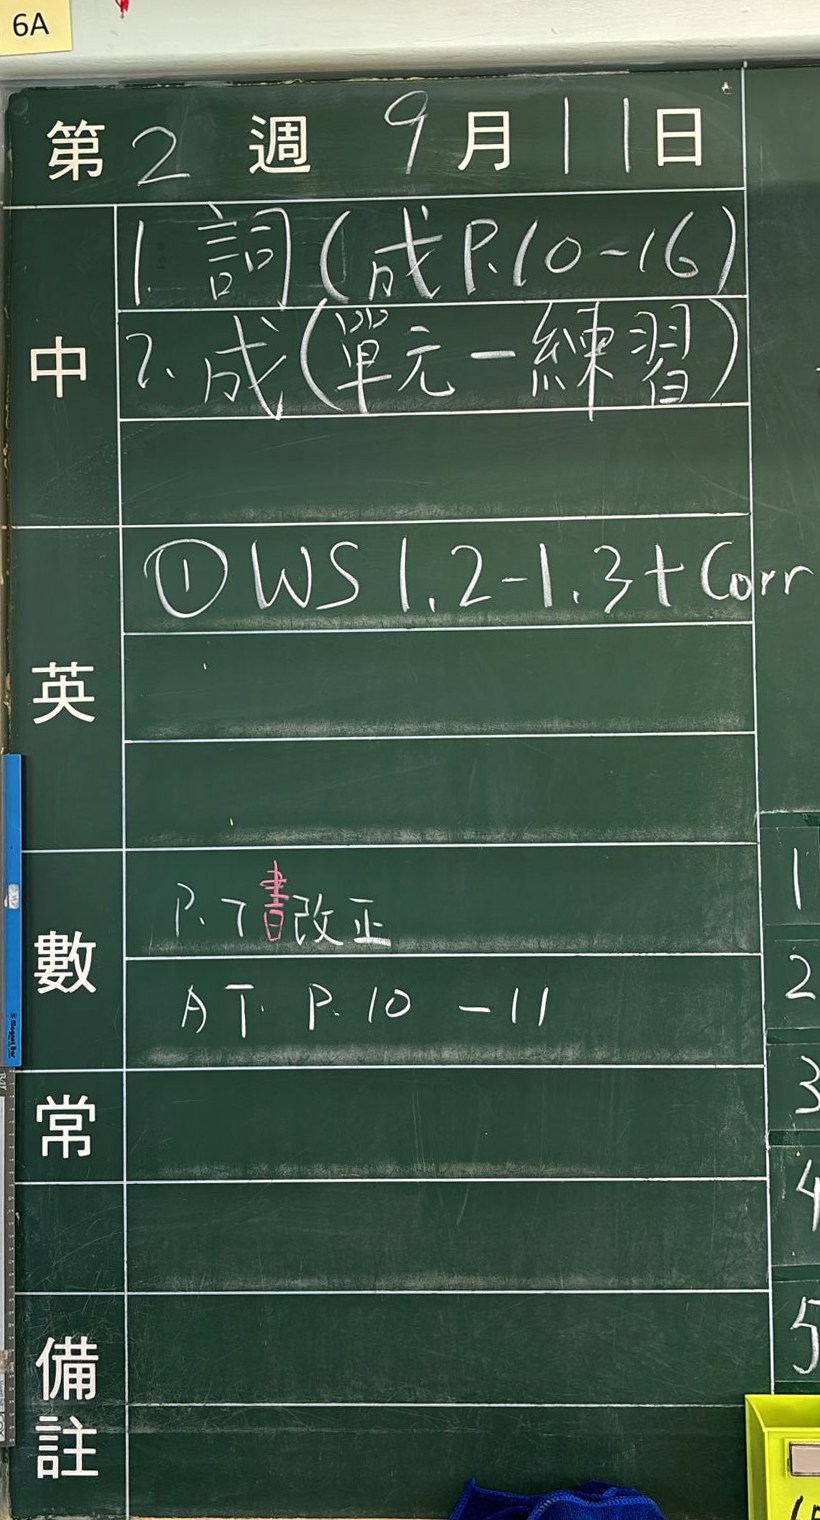 6A
第 2 週 9 月 11 日
中
1. 詞(成P.10-16)
2. 成(單元一練習)
英
① WS 1.2-1.3+Corr
數
P.7書改正
AT. P.10 -11
常
備註
1
2
3
4
5